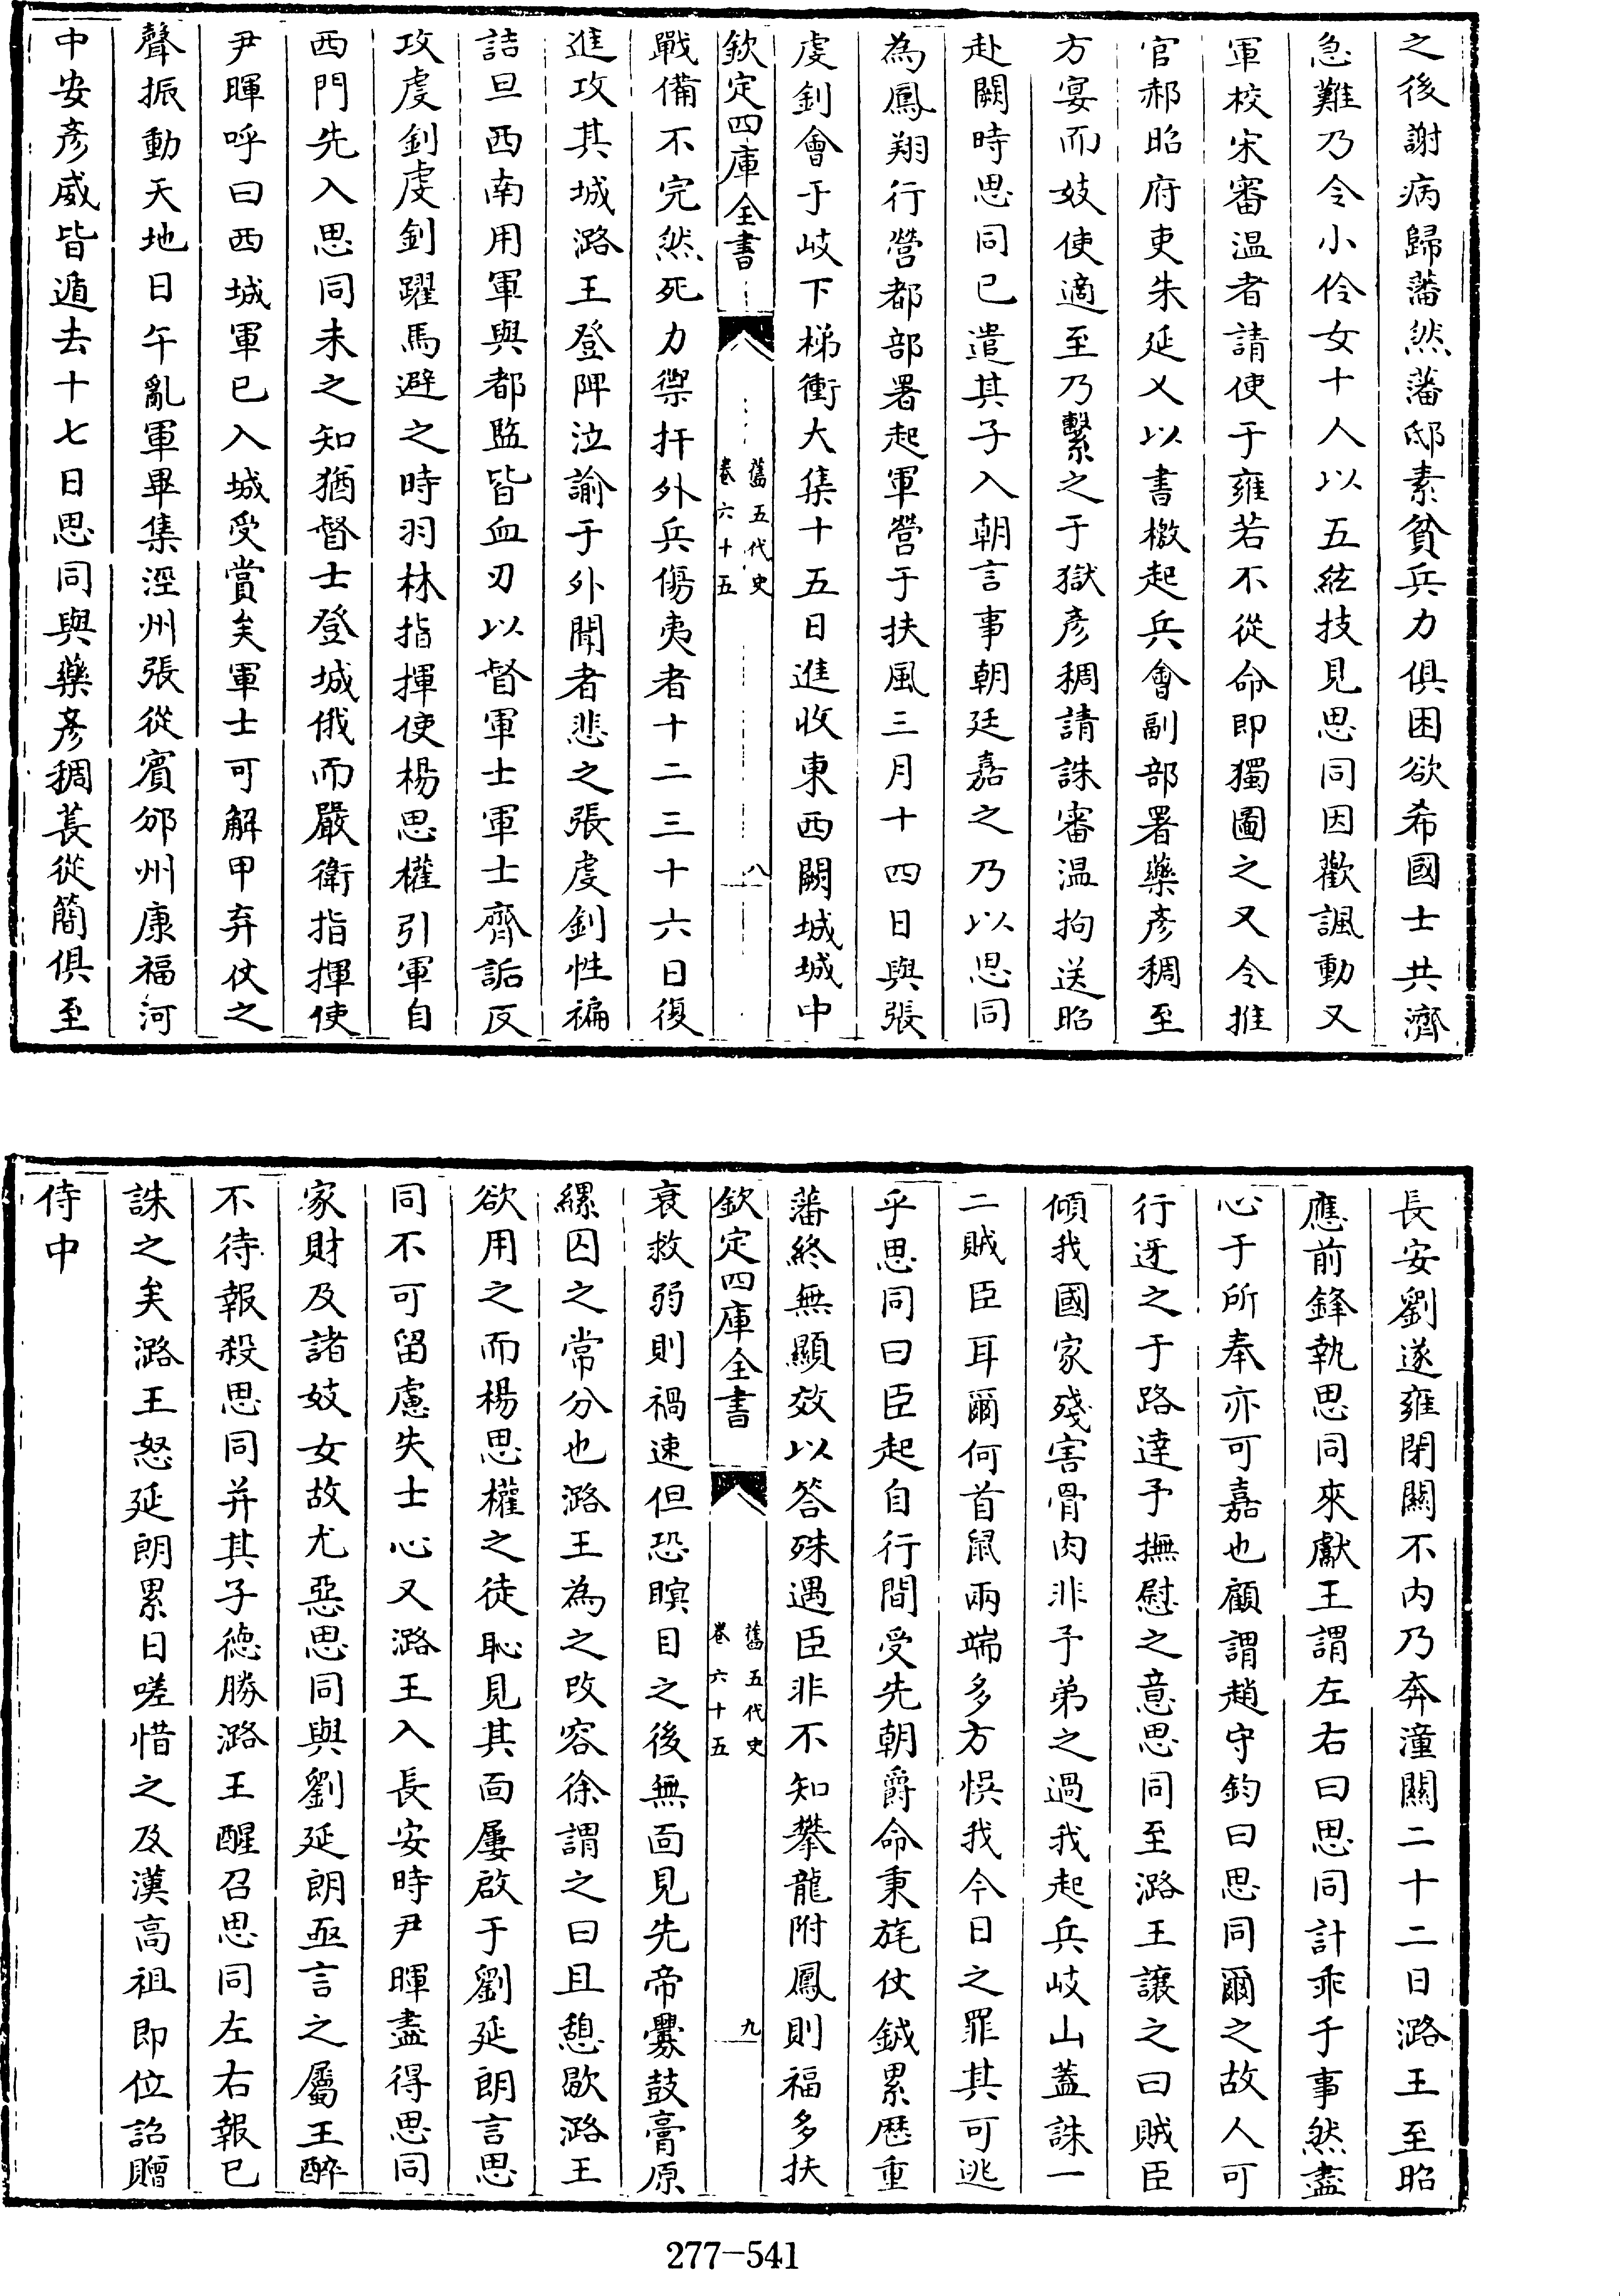 之後謝病歸藩然藩邸素貧兵力俱困欲希國士共濟
急難乃令小伶女十人以五絃技見思同因歡諷動又
軍校宋審温者請使于雍若不從命即獨圖之又令推
官郝昭府吏朱延乂以書檄起兵會副部署藥彦稠至
方宴而妓使適至乃繫之于獄彦稠請誅審温拘送昭
赴闕時思同已遣其子入朝言事朝廷嘉之乃以思同
為鳳翔行營都部署起軍營于扶風三月十四日與張
虔釗會于岐下梯衝大集十五日進收東西闕城城中
欽定四庫全書
舊五代史
卷六十五
八
戰備不完然死力禦扞外兵傷夷者十二三十六日復
進攻其城潞王登陴泣諭于外聞者悲之張虔釗性褊
詰旦西南用軍與都監皆血刃以督軍士軍士齊詬反
攻虔釗虔釗躍馬避之時羽林指揮使楊思權引軍自
西門先入思同未之知猶督士登城俄而嚴衛指揮使
尹暉呼曰西城軍已入城受賞矣軍士可解甲弃仗之
聲振動天地日午亂軍畢集涇州張從賓邠州康福河
中安彦威皆遁去十七日思同與藥彦稠萇從簡俱至
長安劉遂雍閉關不内乃奔潼關二十二日潞王至昭
應前鋒執思同來獻王謂左右曰思同計乖于事然盡
心于所奉亦可嘉也顧謂趙守鈞曰思同爾之故人可
行迓之于路達予撫慰之意思同至潞王讓之曰賊臣
傾我國家殘害骨肉非予弟之過我起兵岐山蓋誅一
二賊臣耳爾何首鼠兩端多方悞我今日之罪其可逃
乎思同曰臣起自行間受先朝爵命秉旄仗鉞累歷重
藩終無顯效以答殊遇臣非不知攀龍附鳳則福多扶
欽定四庫全書
舊五代史
卷六十五
九
衰救弱則禍速但恐瞑目之後無面見先帝釁鼓膏原
縲囚之常分也潞王為之改容徐謂之曰且憩歇潞王
欲用之而楊思權之徒恥見其面屢啟于劉延朗言思
同不可留慮失士心又潞王入長安時尹暉盡得思同
家財及諸妓女故尤惡思同與劉延朗亟言之屬王醉
不待報殺思同并其子德勝潞王醒召思同左右報已
誅之矣潞王怒延朗累日嗟惜之及漢高祖即位詔贈
侍中
277-541